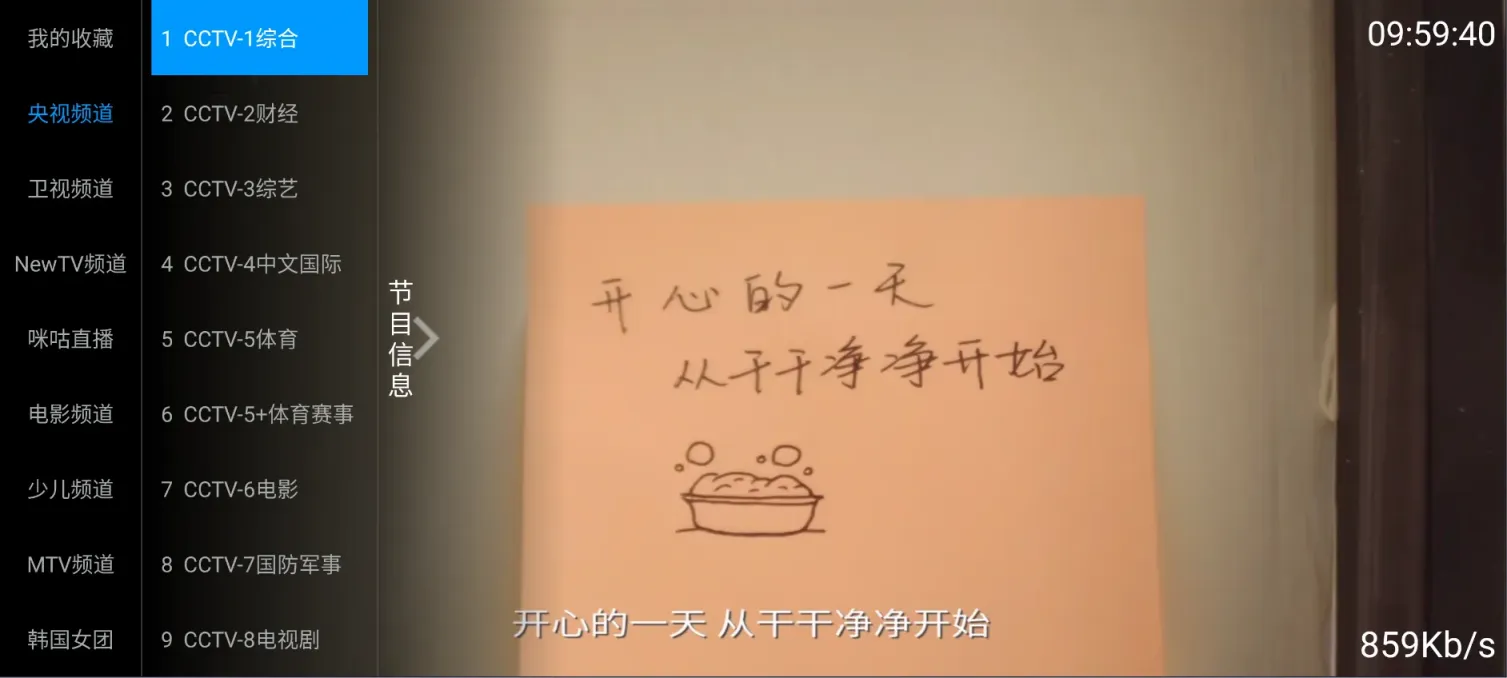 我的收藏
央视频道
卫视频道
NewTV频道
咪咕直播
电影频道
少儿频道
MTV频道
韩国女团
1 CCTV-1综合
2 CCTV-2财经
3 CCTV-3综艺
4 CCTV-4中文国际
5 CCTV-5体育
6 CCTV-5+体育赛事
7 CCTV-6电影
8 CCTV-7国防军事
9 CCTV-8电视剧
节目信息
09:59:40
开心的一天
从干干净净开始
开心的一天 从干干净净开始
859Kb/s